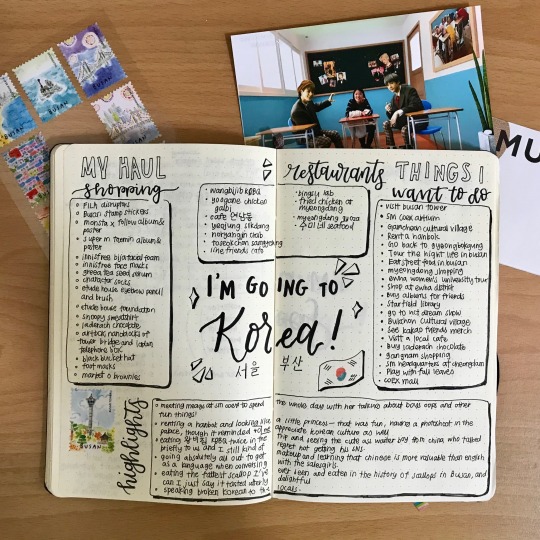 MY HAUL
shopping
• FILA disruptors
• Busan stamp stickers
• monsta x follow album &
poster
• super m taemin album &
poster
• innisfree bija facial foam
• innisfree face masks
• green tea seed serum
• character socks
• etude house eyebrow pencil
and brush
• etude house foundation
• snoopy sweatshirt
• jaderach chocolate
• artbox nanoblocks of
tower bridge and japan
telephone box
• black bucket hat
• foot masks
• market o brownies
• wangbijib KBBQ
• yoogane chicken
galbi
• cafe 연남동
• yeojung sikdang
• noryangjin crab
• tosokchon samgyetang
• line friends cafe
restaurants
• bingsu lab
• fried chicken at
myeongdong
• myeongdong pizza
• 수미네 seafood
THINGS I
want to do
• visit busan tower
• sm coex artium
• gamcheon cultural village
• Rent a hanbok
• Go back to gyeongbokgung
• Tour the night life in busan
• Eat street food in busan
• myeongdong shopping
• ewha women's university tour
• shop at ewha district
• Buy albums for friends
• Starfield library
• go to nct dream show
• Bukchon cultural village
• See kakao friends merch
• Visit a local cafe
• Buy jaderach chocolate
• gangnam shopping
• SM headquarters at cheongdam
• Play with fall leaves
• coex mall
I'M GOING TO
Korea!
서울 부산
highlights
• meeting meagy at sm coex to spend the whole day with her talking about boys oops and other
fun things!
• renting a hanbok and looking like a little princess - that was fun, having a photoshoot in the
• eating twice in the trip and seeing the cute ass waiter boy from china who talked
briefly to us and I still kind of regret not getting his sns
• going absolutely all out to get makeup and learning that chinese is more valuable than english
as a language when conversing with the salesgirls
• eating the fattest scallop I've ever seen and eaten in the history of scallops in Busan, and
can I just say it tasted utterly delightful
• speaking broken korean to the locals
BUSAN
BUSAN
BUSAN
BUSAN
MU